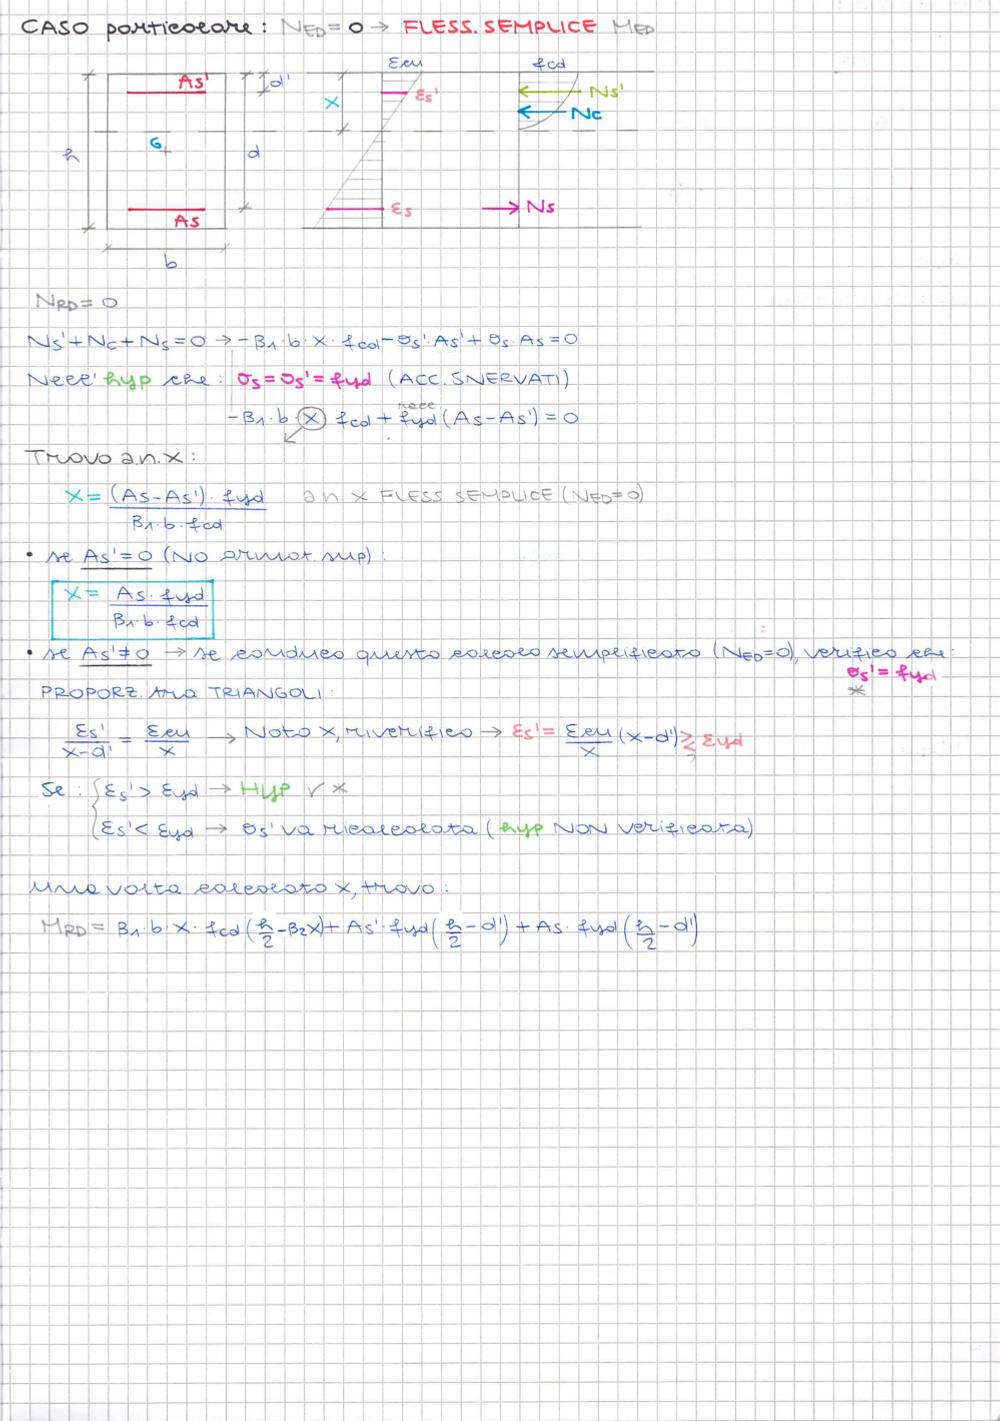 CASO particolare: NED=0 → FLESS. SEMPLICE MED
εcu fcd
As' d' εs' Ns'
x Nc
G
h d
εs Ns
As
b
NRD= 0
Ns'+Nc+Ns=0 → -β1·b·x·fcd-σs'·As'+σs·As=0
Nell'hyp che: σs=σs'=fyd (ACC. SNERVATI)
-β1·b x fcd + fyd(As-As')=0
Trovo a.n.x:
x= (As-As')·fyd / β1·b·fcd an x FLESS SEMPLICE (NED=0)
• se As'=0 (NO armat. sup):
x= As·fyd / β1·b·fcd
• se As'≠0 → se conduco questo calcolo semplificato (NED=0), verifico che:
σs'=fyd
*
PROPORZ. tra TRIANGOLI:
εs'/x-d' = εcu/x → Noto x, riverifico → εs'= εcu/x (x-d') ≥ εyd
Se: { εs'> εyd → Hyp √ *
εs'< εyd → σs' va ricalcolata (hyp NON verificata)
Una volta calcolato x, trovo:
MRD= β1·b·x·fcd(h/2-β2x)+As'·fyd(h/2-d')+As·fyd(h/2-d')